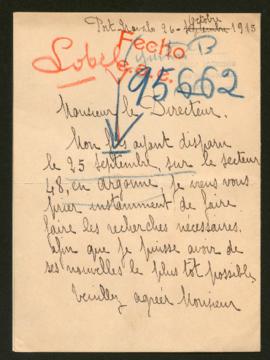 Octobre
Port 26 - Septembre 1915
Fecho
Lobel B
S.A.C.
95662
Monsieur le Directeur.
Mon fils ayant disparu
le 25 septembre, sur le secteur
48, en Argonne, je viens vous
prier instamment de faire
faire les recherches nécessaires.
afin que je puisse avoir de
ses nouvelles le plus tôt possible.
Veuillez agréer Monsieur